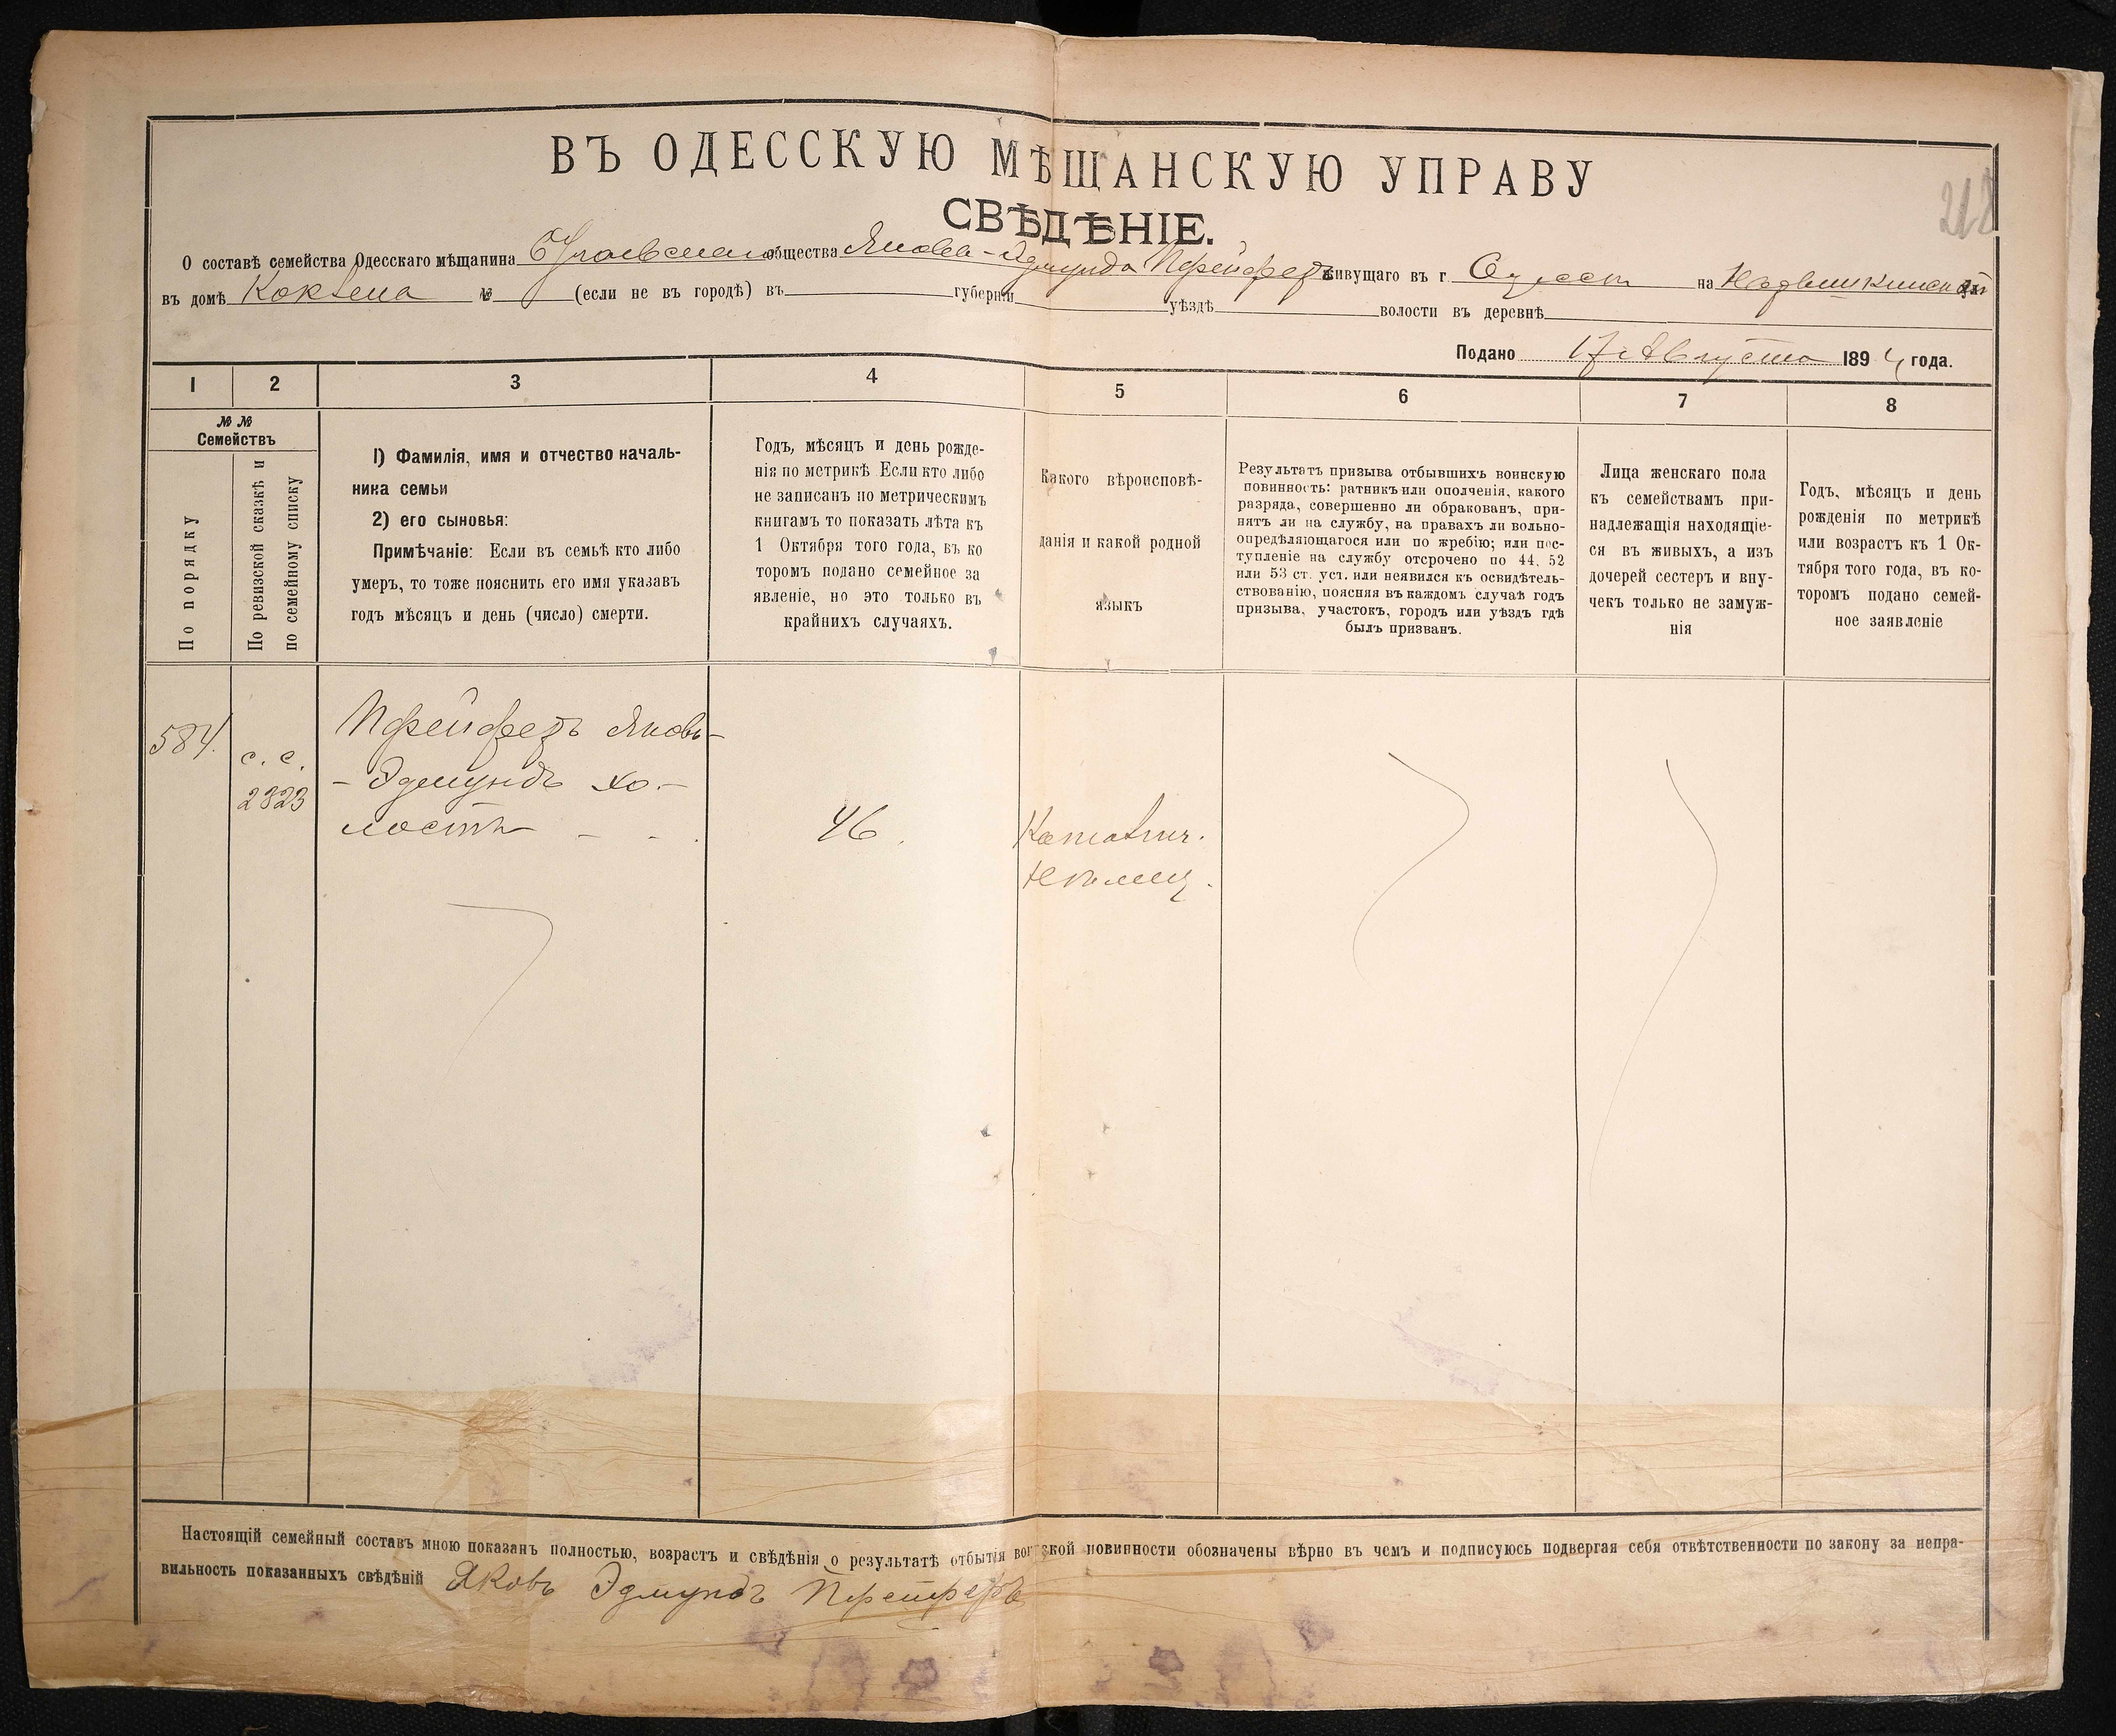 ВЪ ОДЕССКУЮ МѢЩАНСКУЮ УПРАВУ
218
СВѢДѢНІЕ.
О составѣ семейства Одесскаго мѣщанина общества Якова-Эдмунда Пфейферъ живущаго въ г. Одессѣ на ул.
въ домѣ № (если не въ городѣ) въ губерніи уѣздѣ волости въ деревнѣ
Подано 17 Августа 1894 года.
1 2 3 4 5 6 7 8
№ №
Семействъ
По порядку
По ревизской сказкѣ и
по семейному списку
1) Фамилія, имя и отчество началь-
ника семьи
2) его сыновья:
Примѣчаніе: Если въ семьѣ кто либо
умеръ, то тоже пояснить его имя указавъ
годъ мѣсяцъ и день (число) смерти.
Годъ, мѣсяцъ и день рожде-
нія по метрикѣ Если кто либо
не записанъ по метрическимъ
книгамъ то показать лѣта къ
1 Октября того года, въ ко
торомъ подано семейное за
явленіе, но это только въ
крайнихъ случаяхъ.
Какого вѣроисповѣ-
данія и какой родной
языкъ
Результатъ призыва отбывшихъ воинскую
повинность: ратникъ или ополченія, какого
разряда, совершенно ли обракованъ, при-
нятъ ли на службу, на правахъ ли вольно-
опредѣляющагося или по жребію; или пос-
тупленіе на службу отсрочено по 44, 52
или 53 ст. уст. или неявился къ освидѣтель-
ствованію, поясняя въ каждомъ случаѣ годъ
призыва, участокъ, городъ или уѣздъ гдѣ
былъ призванъ.
Лица женскаго пола
къ семействамъ при-
надлежащія находящіе-
ся въ живыхъ, а изъ
дочерей сестеръ и вну-
чекъ только не замуж-
нія
Годъ, мѣсяцъ и день
рожденія по метрикѣ
или возрастъ къ 1 Ок-
тября того года, въ ко-
торомъ подано семей-
ное заявленіе
584.
с. с.
2823
Пфейферъ Яковъ-
- Эдмундъ хо-
лостъ - - .
46.
Католич.
Нѣмец.
Настоящій семейный составъ мною показанъ полностью, возрастъ и свѣдѣнія о результатѣ отбытія воинской повинности обозначены вѣрно въ чемъ и подписуюсь подвергая себя отвѣтственности по закону за непра-
вильность показанныхъ свѣдѣній Яковъ Эдмундъ Пфейферъ